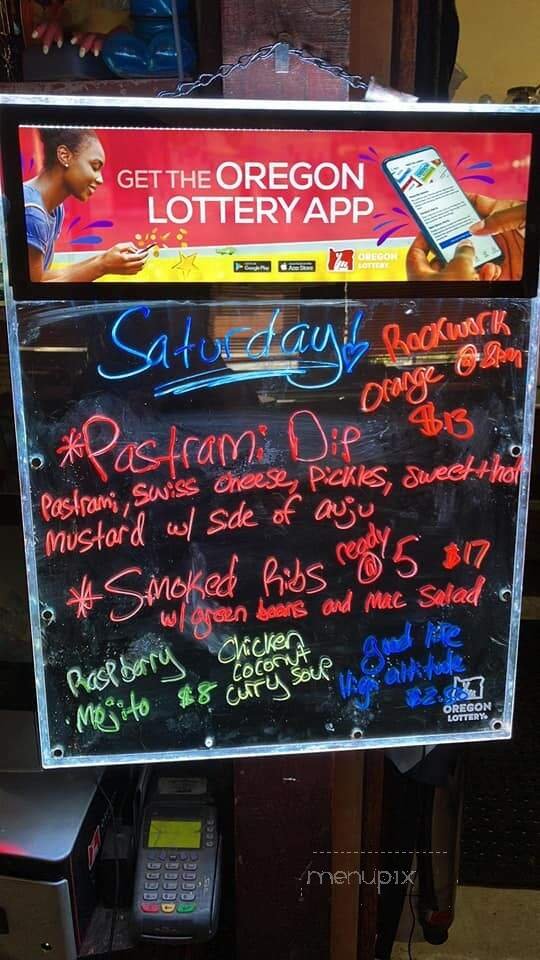 GET THE OREGON
LOTTERY APP
Google Play
App Store
OREGON
LOTTERY
Saturday!
Rockwork
Orange @ 8pm
*Pastrami Dip
$13
Pastrami, swiss cheese, Pickles, sweet + hot
mustard w/ side of auju
*Smoked Ribs ready @ 5 $17
w/ green beans and mac salad
Raspberry
Mojito $8
Chicken
coconut
curry soup
good life
High altitude
$2.50
OREGON
LOTTERY
menupix